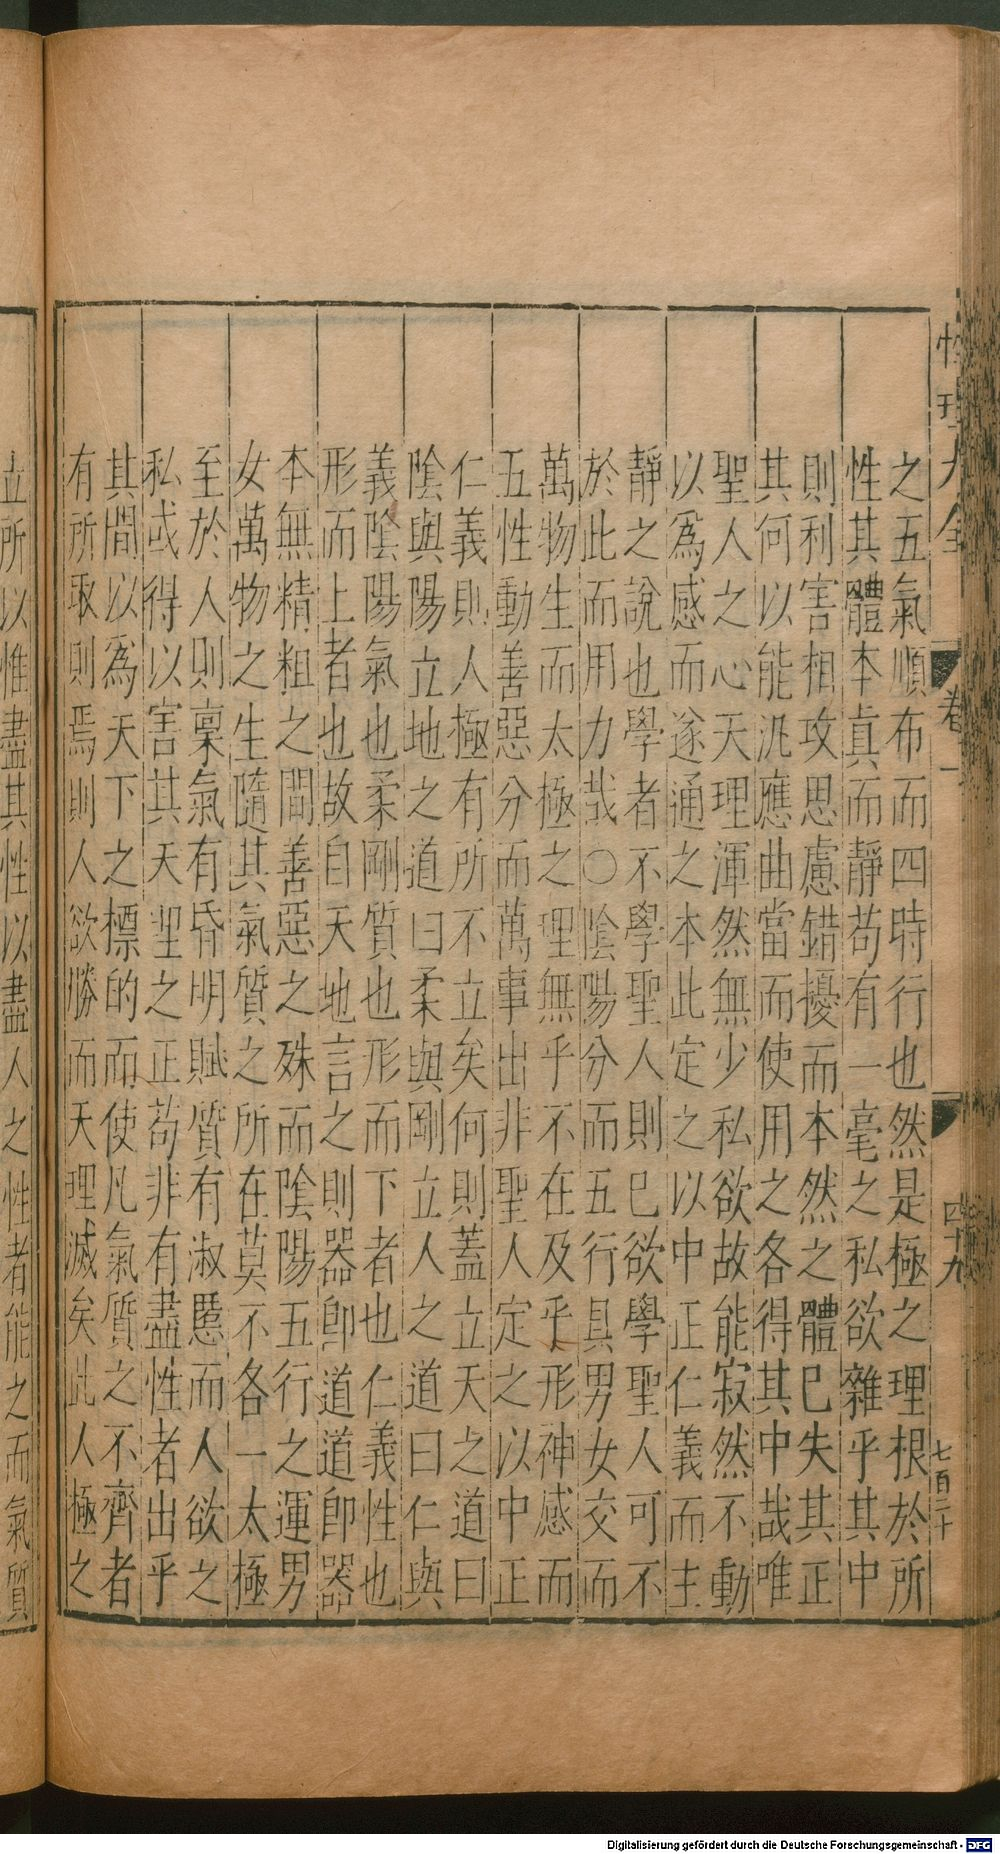 性理大全
卷一
四十九
七百二十
之五氣順布而四時行也然是極之理根於所
性其體本真而靜苟有一毫之私欲雜乎其中
則利害相攻思慮錯擾而本然之體已失其正
其何以能汎應曲當而使用之各得其中哉唯
聖人之心天理渾然無少私欲故能寂然不動
以爲感而遂通之本此定之以中正仁義而主
靜之說也學者不學聖人則已欲學聖人可不
於此而用力哉○陰陽分而五行具男女交而
萬物生而太極之理無乎不在及乎形神感而
五性動善惡分而萬事出非聖人定之以中正
仁義則人極有所不立矣何則蓋立天之道曰
陰與陽立地之道曰柔與剛立人之道曰仁與
義陰陽氣也柔剛質也形而下者也仁義性也
形而上者也故自天地言之則器卽道道卽器
本無精粗之間善惡之殊而陰陽五行之運男
女萬物之生隨其氣質之所在莫不各一太極
至於人則稟氣有昏明賦質有淑慝而人欲之
私或得以害其天理之正苟非有盡性者出乎
其間以爲天下之標的而使凡氣質之不齊者
有所取則焉則人欲勝而天理滅矣此人極之
立所以惟盡其性以盡人之性者能之而氣質
Digitalisierung gefördert durch die Deutsche Forschungsgemeinschaft - DFG